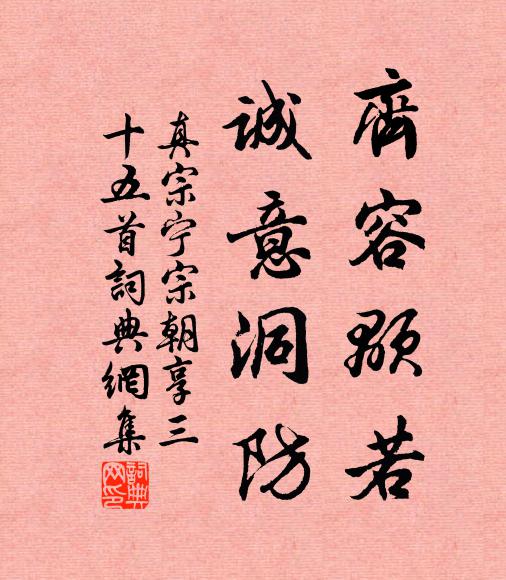 齊容顒若
誠意洞防
真宗宁宗朝享三
十五首詞典網集
詞典
网印